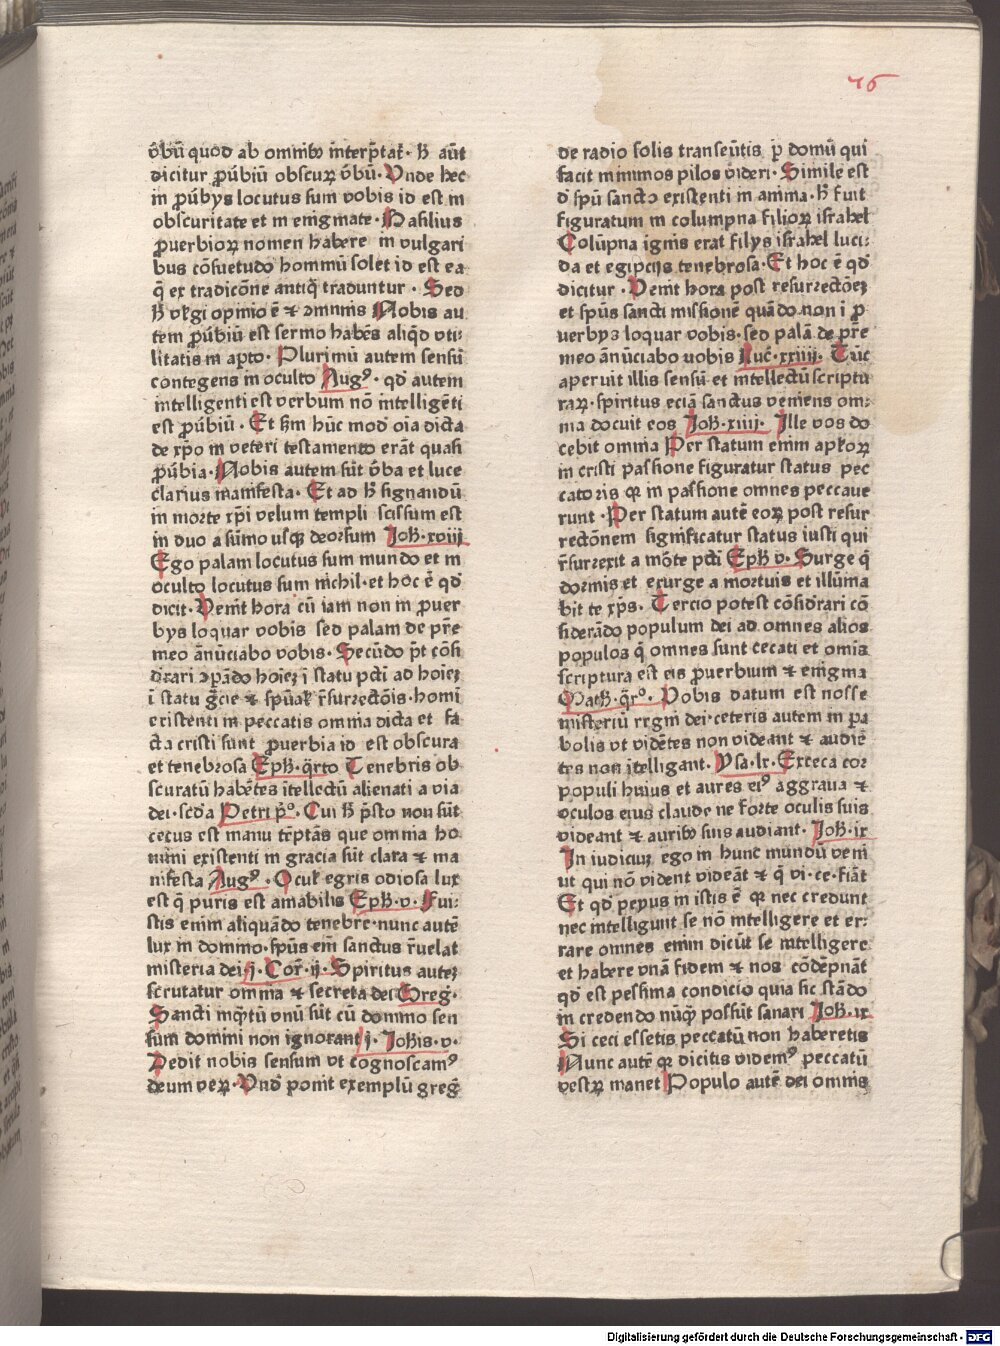 76
v̄bū quod ab omnibꝫ interp̄tat̄· h̄ aūt
dicitur ꝓūbiū obscuꝝ v̄bū· Vnde hec
in ꝓūbys locutus sum vobis id est in
obscuritate et in enigmate· Basilius
ꝓuerbioꝝ nomen habere in vulgari
bus cōsuetudo hominū solet id est ea
q̄ ex tradicōne antiq̄ traduntur · Sed
h̄ vl̄gi opinio ē ⁊ ꝯmunis Nobis au
tem ꝓūbiū est sermo habēs aliqd̄ vti⸗
litatis in ap̄to· Plurimū autem sensū
contegens in oculto Augꝰ · qd̄ autem
intelligenti est verbum nō intelligēti
est ꝓūbiū · Et sm̄ hūc mod̄ oīa dicta
de xp̄o in veteri testamento erāt quasi
ꝓūbia· Nobis autem sūt v̄ba et luce
clarius manifesta· Et ad h̄ signandū
in morte xp̄i velum templi scissum est
in duo a sūmo usqꝫ deorsum Joh̄·xviij
Ego palam locutus sum mundo et in
oculto locutus sum nichil·et hoc ē qd̄
dicit· Venit hora cū iam non in ꝓuer
bys loquar vobis sed palam de pr̄e
meo ānūciabo vobis· Secūdo p̄t cōsi
d̄rari ꝯpādo hoīeꝫ ī statu pcti ad hoīeꝫ
ī statu gr̄cie ⁊ spūal̄ r̄surꝛectōis· homī
existenti in peccatis omnia dicta et fa
cta cristi sunt ꝓuerbia id est obscura
et tenebrosa Eph̄·q̄rto Tenebris ob
scuratū habētes ītellectū alienati a via
dei· scd̄a Petri p̄º· Cui h̄ p̄sto non sūt
cecus est manu tēptās que omnia ho
mini existenti in gracia sūt clara ⁊ ma
nifesta Augꝰ · Ocul̄ egris odiosa lux
est q̄ puris est amabilis Eph̄·v· Fui⸗
stis enim aliquādo tenebre·nunc autē
lux in domino·sp̄us em̄ sanctus r̄uelat
misteria dei·j· Cor̄·ij· Spiritus auteꝫ
scrutatur omnia ⁊ secreta dei Greḡ·
Sancti inq̄tū vnū sūt cū domino sen
sum domini non ignorant j· Joh̄is·v·
Dedit nobis sensum vt cognoscamꝰ
deum veꝝ· Vnd̄ ponit exemplū greḡ
de radio solis transeūtis p̄ domū qui
facit minimos pilos videri· Simile est
d̄ spū sancto existenti in anima· h̄ fuit
figuratum in columpna filioꝝ israhel
Colūpna ignis erat filys israhel luci⸗
da et egipcijs tenebrosa· Et hoc ē qd̄
dicitur · Venit hora post resurꝛectōeꝫ
et spūs sancti missionē quādo non ī ꝓ
verbys loquar vobis·sed palā de pr̄e
meo ānūciabo uobis Luc̄·xxiiij· Tūc
aperuit illis sensū et intellectū scriptu
raꝝ· spiritus eciā sanctus veniens om⸗
nia docuit eos Joh̄·xiiij· Ille vos do
cebit omnia Per statum enim apl̄oꝝ
in cristi passione figuratur status pec
catoris qꝛ in passione omnes peccaue
runt · Per statum autē eoꝝ post resur
rectōnem significatur status iusti qui
r̄surꝛexit a mōte pcti Eph̄ v· Surge q̄
dormis et exurge a mortuis et illūina
bit te xp̄s· Tercio potest cōsid̄rari cō
siderādo populum dei ad omnes alios
populos q̄ omnes sunt cecati et omīs
scriptura est eis ꝓuerbium ⁊ enigma
Math̄·q̄rº· Vobis datum est nosse
misteriū rrgni dei·ceteris autem in pa
bolis vt vidētes non videant ⁊ audiē
tes non ītelligant· Ysa·lx· Exceca cor
populi huius et aures eiꝰ aggraua ⁊
oculos eius claude ne forte oculis suis
videant ⁊ auribꝫ suis audiant· Joh̄·ix
In iudiciuꝫ ego in hunc mundū veni
ut qui nō vident videāt ⁊ q̄ vi·ce·fiāt
Et qd̄ peyus in istis ē qꝛ nec credunt
nec intelligunt se nō intelligere et er⸗
rare omnes enim dicūt se intelligere
et habere vnā fidem ⁊ nos cōdēpnāt
qd̄ est pessima condicio quia sic stādo
in credendo nūqꝫ possūt sanari Joh̄·ix
Si ceci essetis peccatū non haberetis
Nunc autē qꝛ dicitis videmꝰ peccatū
vestꝝ manet Populo autē dei omnis
Digitalisierung gefördert durch die Deutsche Forschungsgemeinschaft · DFG